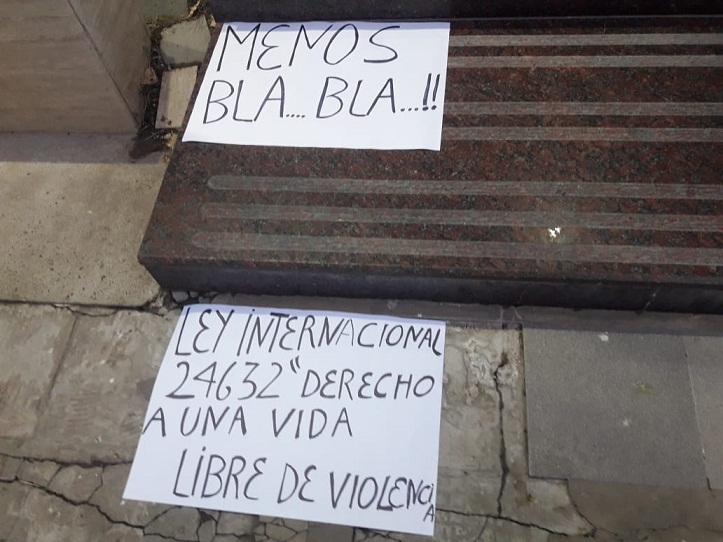 MENOS
BLA.... BLA...!!
LEY INTERNACIONAL
24632 "DERECHO
A UNA VIDA
LIBRE DE VIOLENCIA